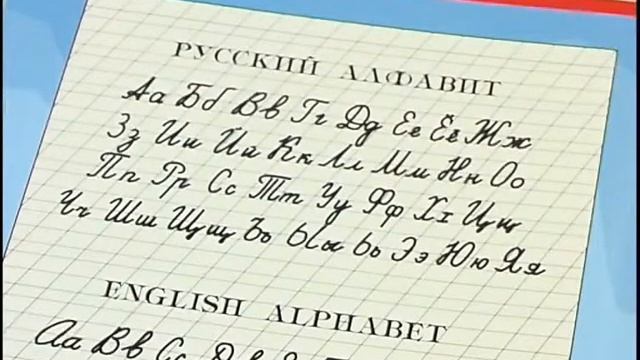 РУССКИЙ АЛФАВИТ
Аа Бб Вв Гг Дд Ее Ёё Жж
Зз Ии Йй Кк Лл Мм Нн Оо
Пп Рр Сс Тт Уу Фф Хх Цц
Чч Шш Щщ Ъъ Ыы Ьь Ээ Юю Яя
ENGLISH ALPHABET
Aa Bb Cc